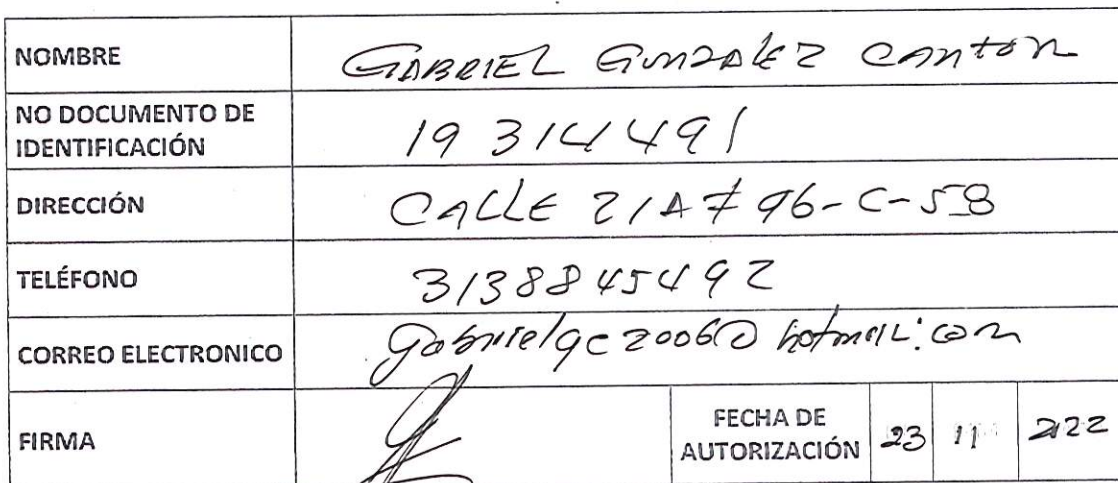 NOMBRE GABRIEL GONZALEZ CANTOR
NO DOCUMENTO DE
IDENTIFICACIÓN 19 314491
DIRECCIÓN CALLE 21A # 96-C-58
TELÉFONO 3138845492
CORREO ELECTRONICO gabrielgc2006@hotmail.com
FIRMA FECHA DE
AUTORIZACIÓN 23 11 2022